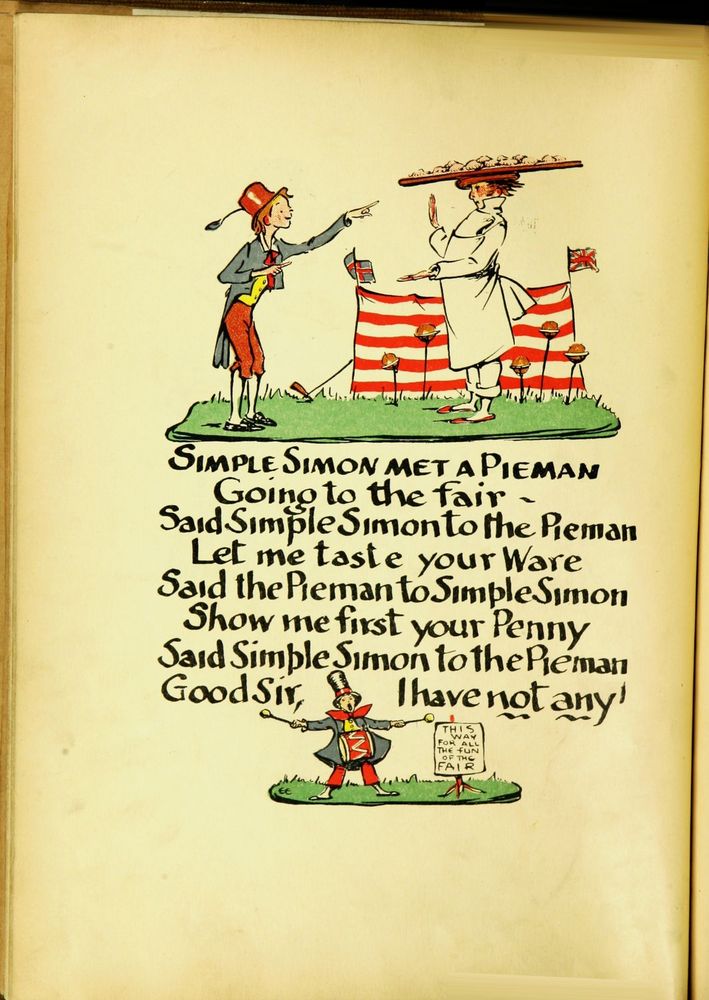 SIMPLE SIMON MET A PIEMAN
Going to the fair ~
Said Simple Simon to the Pieman
Let me taste your Ware
Said the Pieman to Simple Simon
Show me first your Penny
Said Simple Simon to the Pieman
Good Sir, I have not any!
THIS
WAY
FOR ALL
THE FUN
OF THE
FAIR